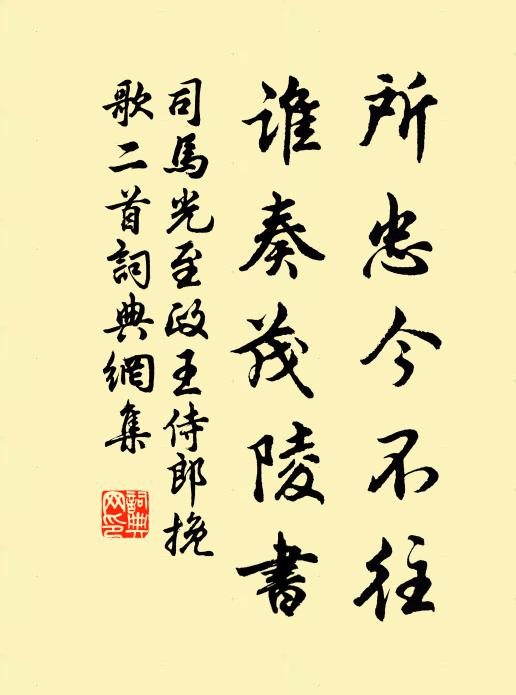 所忠今不往
誰奏茂陵書
司馬光至政王侍郎挽
歌二首詞典網集
詞典
网印